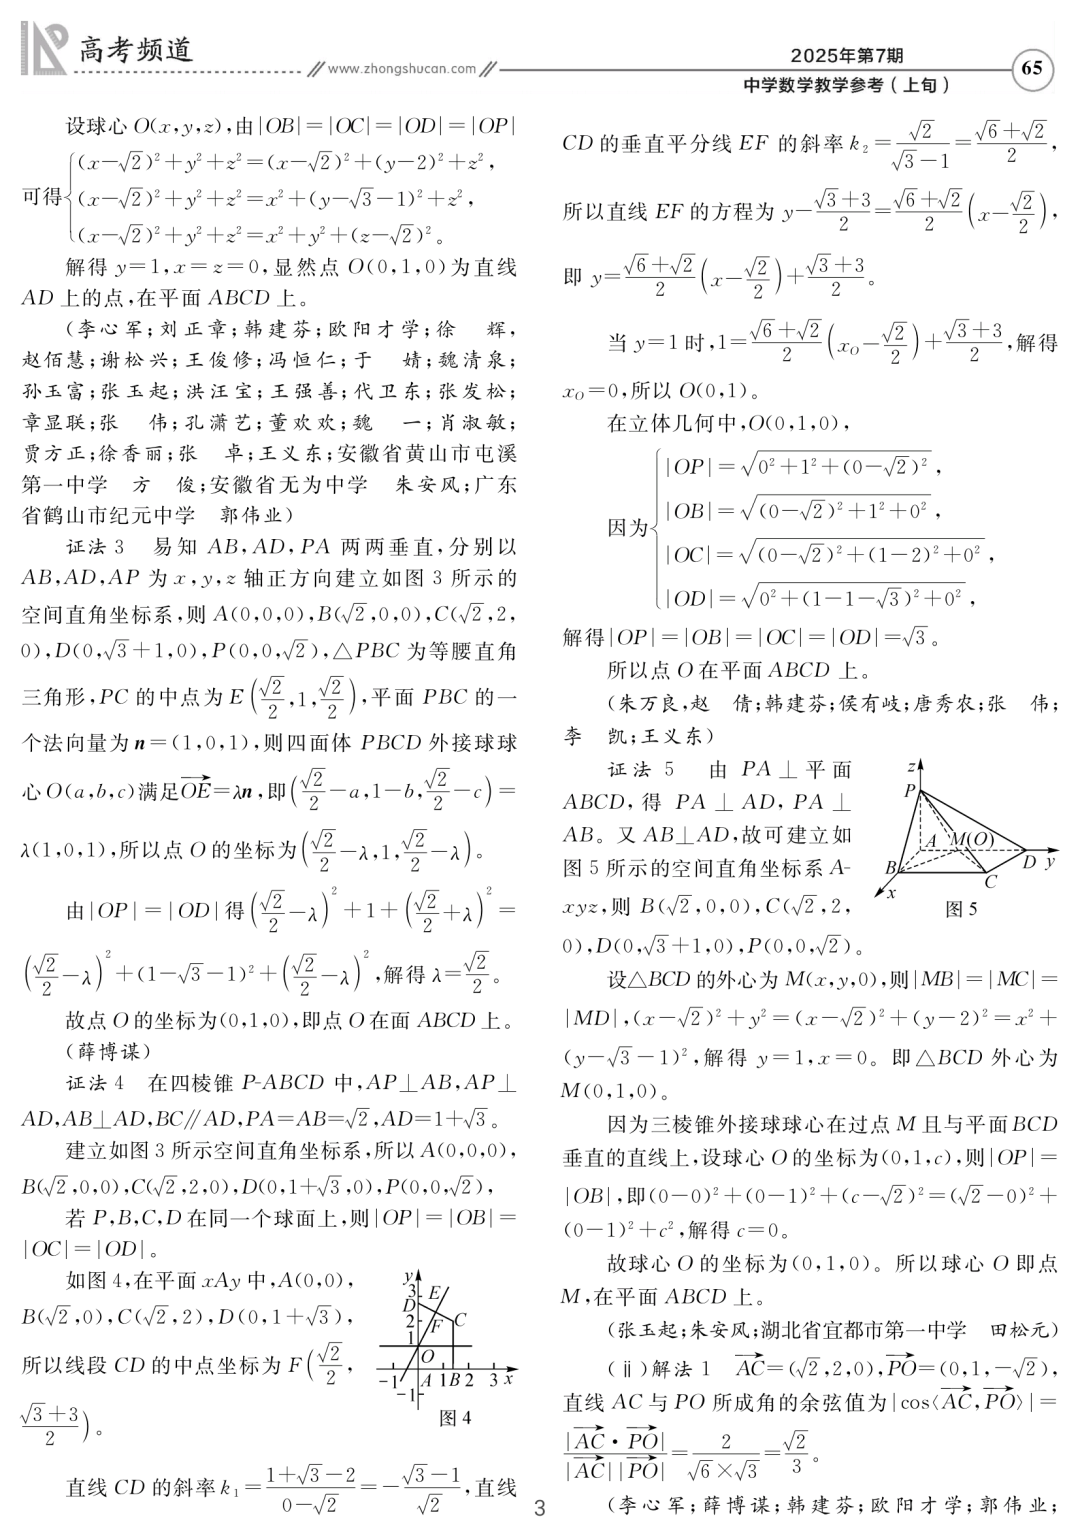 高考频道
www.zhongshucan.com
2025年第7期
中学数学教学参考(上旬)
65
设球心 O(x,y,z),由|OB|=|OC|=|OD|=|OP|
可得{(x-√2)²+y²+z²=(x-√2)²+(y-2)²+z²,
(x-√2)²+y²+z²=x²+(y-√3-1)²+z²,
(x-√2)²+y²+z²=x²+y²+(z-√2)²。
解得 y=1,x=z=0,显然点 O(0,1,0)为直线
AD 上的点,在平面 ABCD 上。
(李心军;刘正章;韩建芬;欧阳才学;徐 辉,
赵佰慧;谢松兴;王俊修;冯恒仁;于 婧;魏清泉;
孙玉富;张玉起;洪汪宝;王强善;代卫东;张发松;
章显联;张 伟;孔潇艺;董欢欢;魏 一;肖淑敏;
贾方正;徐香丽;张 卓;王义东;安徽省黄山市屯溪
第一中学 方 俊;安徽省无为中学 朱安风;广东
省鹤山市纪元中学 郭伟业)
证法 3 易知 AB,AD,PA 两两垂直,分别以
AB,AD,AP 为 x,y,z 轴正方向建立如图 3 所示的
空间直角坐标系,则 A(0,0,0),B(√2,0,0),C(√2,2,
0),D(0,√3+1,0),P(0,0,√2),△PBC 为等腰直角
三角形,PC 的中点为 E(√2/2,1,√2/2),平面 PBC 的一
个法向量为 n=(1,0,1),则四面体 PBCD 外接球球
心 O(a,b,c)满足OE→=λn,即(√2/2-a,1-b,√2/2-c)=
λ(1,0,1),所以点 O 的坐标为(√2/2-λ,1,√2/2-λ)。
由|OP|=|OD|得(√2/2-λ)²+1+(√2/2+λ)²=
(√2/2-λ)²+(1-√3-1)²+(√2/2-λ)²,解得 λ=√2/2。
故点 O 的坐标为(0,1,0),即点 O 在面 ABCD 上。
(薛博谋)
证法 4 在四棱锥 P-ABCD 中,AP⊥AB,AP⊥
AD,AB⊥AD,BC∥AD,PA=AB=√2,AD=1+√3。
建立如图 3 所示空间直角坐标系,所以 A(0,0,0),
B(√2,0,0),C(√2,2,0),D(0,1+√3,0),P(0,0,√2),
若 P,B,C,D 在同一个球面上,则|OP|=|OB|=
|OC|=|OD|。
如图 4,在平面 xAy 中,A(0,0),
B(√2,0),C(√2,2),D(0,1+√3),
所以线段 CD 的中点坐标为 F(√2/2,
(√3+3)/2)。
y
3 E
D
2 F C
1
O
-1 A 1 B 2 3 x
-1
图 4
直线 CD 的斜率 k₁=(1+√3-2)/(0-√2)=-(√3-1)/√2,直线
CD 的垂直平分线 EF 的斜率 k₂=√2/(√3-1)=(√6+√2)/2,
所以直线 EF 的方程为 y-(√3+3)/2=(√6+√2)/2(x-√2/2),
即 y=(√6+√2)/2(x-√2/2)+(√3+3)/2。
当 y=1 时,1=(√6+√2)/2(x_O-√2/2)+(√3+3)/2,解得
x_O=0,所以 O(0,1)。
在立体几何中,O(0,1,0),
因为{|OP|=√(0²+1²+(0-√2)²),
|OB|=√((0-√2)²+1²+0²),
|OC|=√((0-√2)²+(1-2)²+0²),
|OD|=√(0²+(1-1-√3)²+0²),
解得|OP|=|OB|=|OC|=|OD|=√3。
所以点 O 在平面 ABCD 上。
(朱万良,赵 倩;韩建芬;侯有岐;唐秀农;张 伟;
李 凯;王义东)
证法 5 由 PA⊥平面
ABCD,得 PA⊥AD,PA⊥
AB。又 AB⊥AD,故可建立如
图 5 所示的空间直角坐标系 A-
xyz,则 B(√2,0,0),C(√2,2,
0),D(0,√3+1,0),P(0,0,√2)。
z
P
A M(O)
B D y
C
x
图 5
设△BCD 的外心为 M(x,y,0),则|MB|=|MC|=
|MD|,(x-√2)²+y²=(x-√2)²+(y-2)²=x²+
(y-√3-1)²,解得 y=1,x=0。即△BCD 外心为
M(0,1,0)。
因为三棱锥外接球球心在过点 M 且与平面 BCD
垂直的直线上,设球心 O 的坐标为(0,1,c),则|OP|=
|OB|,即(0-0)²+(0-1)²+(c-√2)²=(√2-0)²+
(0-1)²+c²,解得 c=0。
故球心 O 的坐标为(0,1,0)。所以球心 O 即点
M,在平面 ABCD 上。
(张玉起;朱安风;湖北省宜都市第一中学 田松元)
(ⅱ)解法 1 AC→=(√2,2,0),PO→=(0,1,-√2),
直线 AC 与 PO 所成角的余弦值为|cos⟨AC→,PO→⟩|=
|AC→·PO→|/(|AC→||PO→|)=2/(√6×√3)=√2/3。
(李心军;薛博谋;韩建芬;欧阳才学;郭伟业;
3